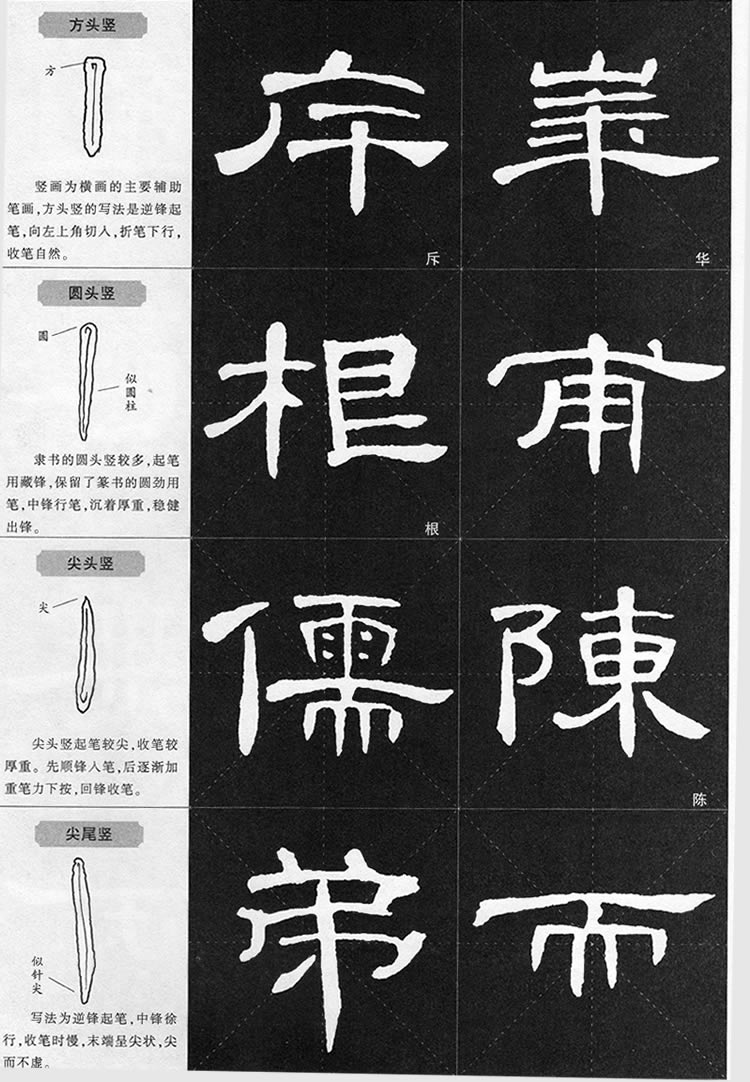 方头竖
方
竖画为横画的主要辅助
笔画,方头竖的写法是逆锋起
笔,向左上角切入,折笔下行,
收笔自然。
斥
华
圆头竖
圆
似圆柱
隶书的圆头竖较多,起笔
用藏锋,保留了篆书的圆劲用
笔,中锋行笔,沉着厚重,稳健
出锋。
根
甫
根
尖头竖
尖
尖头竖起笔较尖,收笔较
厚重。先顺锋入笔,后逐渐加
重笔力下按,回锋收笔。
儒
陳
陈
尖尾竖
似针尖
写法为逆锋起笔,中锋徐
行,收笔时慢,末端呈尖状,尖
而不虚。
弟
而